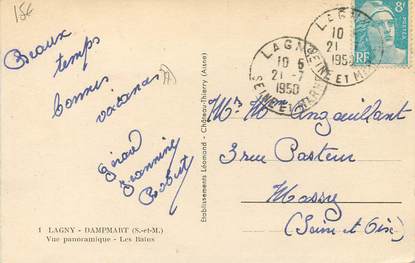 15€
Beaux
temps
bonnes
vacances
Jeannine
Robert
1 LAGNY - DAMPMART (S.-et-M.)
Vue panoramique - Les Bains
Etablissements Léomand - Château-Thierry (Aisne)
LAGNY
10 6
21 -7
1950
SEINE ET MARNE
LAGNY
10
21
1950
SEINE ET MARNE
8F
POSTES
RF
Mr Mme Angouillant
3 rue Pasteur
Massy
(Seine et Oise)